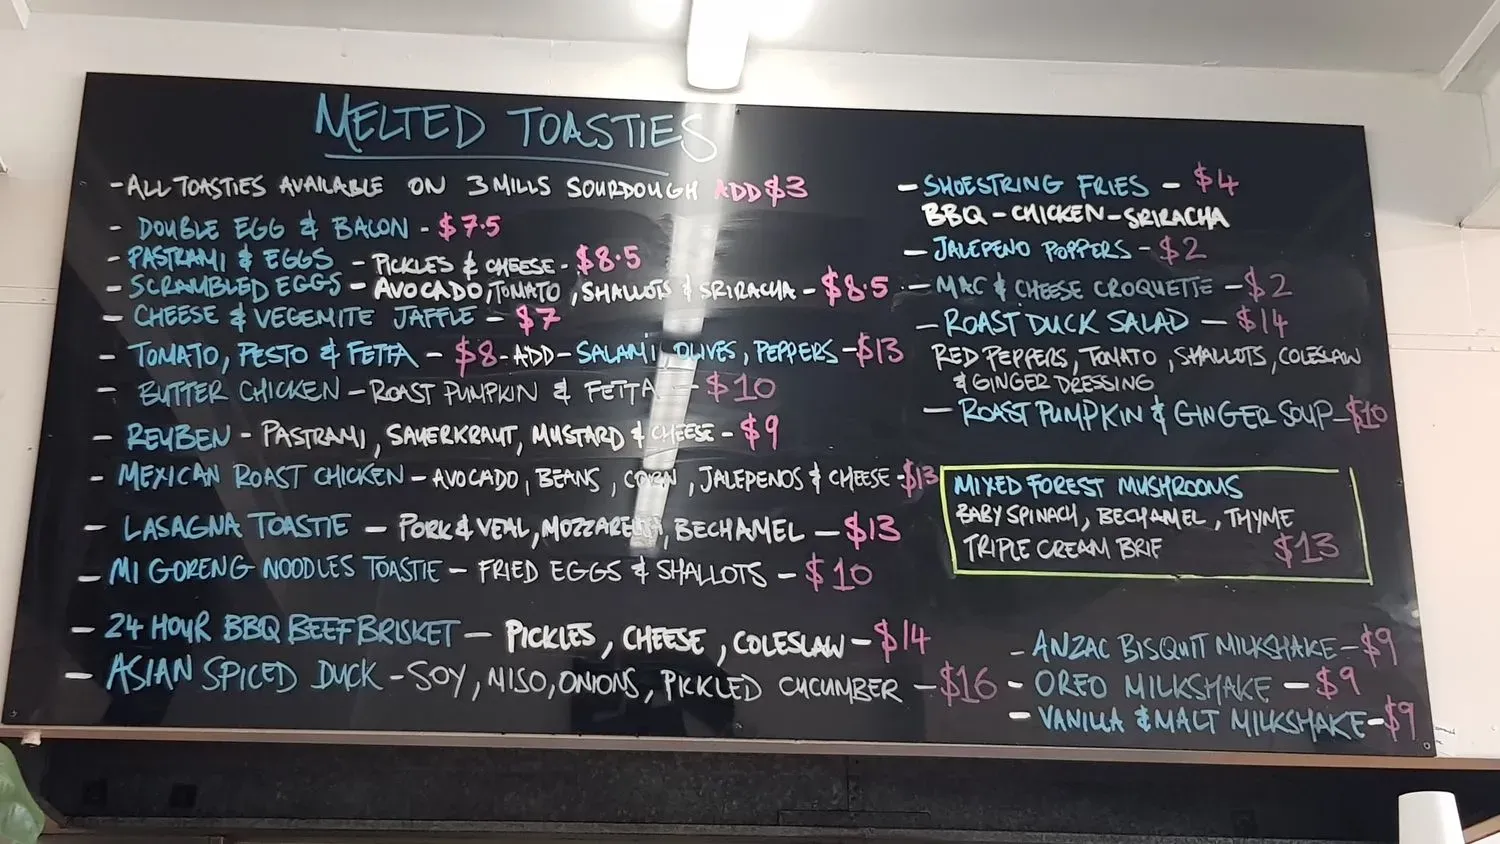 MELTED TOASTIES
- ALL TOASTIES AVAILABLE ON 3 MILLS SOURDOUGH ADD $3
- DOUBLE EGG & BACON - $7.5
- PASTRAMI & EGGS - PICKLES & CHEESE - $8.5
- SCRAMBLED EGGS - AVOCADO, TOMATO, SHALLOTS & SRIRACHA - $8.5
- CHEESE & VEGEMITE JAFFLE - $7
- TOMATO, PESTO & FETTA - $8 - ADD - SALAMI, OLIVES, PEPPERS - $13
- BUTTER CHICKEN - ROAST PUMPKIN & FETTA - $10
- REUBEN - PASTRAMI, SAUERKRAUT, MUSTARD & CHEESE - $9
- MEXICAN ROAST CHICKEN - AVOCADO, BEANS, CORN, JALEPENOS & CHEESE - $13
- LASAGNA TOASTIE - PORK & VEAL, MOZZARELLA, BECHAMEL - $13
- MI GORENG NOODLES TOASTIE - FRIED EGGS & SHALLOTS - $10
- 24 HOUR BBQ BEEF BRISKET - PICKLES, CHEESE, COLESLAW - $14
- ASIAN SPICED DUCK - SOY, MISO, ONIONS, PICKLED CUCUMBER - $16
- SHOESTRING FRIES - $4
BBQ - CHICKEN - SRIRACHA
- JALEPENO POPPERS - $2
- MAC & CHEESE CROQUETTE - $2
- ROAST DUCK SALAD - $14
RED PEPPERS, TOMATO, SHALLOTS, COLESLAW
& GINGER DRESSING
- ROAST PUMPKIN & GINGER SOUP - $10
MIXED FOREST MUSHROOMS
BABY SPINACH, BECHAMEL, THYME
TRIPLE CREAM BRIE $13
- ANZAC BISQUIT MILKSHAKE - $9
- OREO MILKSHAKE - $9
- VANILLA & MALT MILKSHAKE - $9